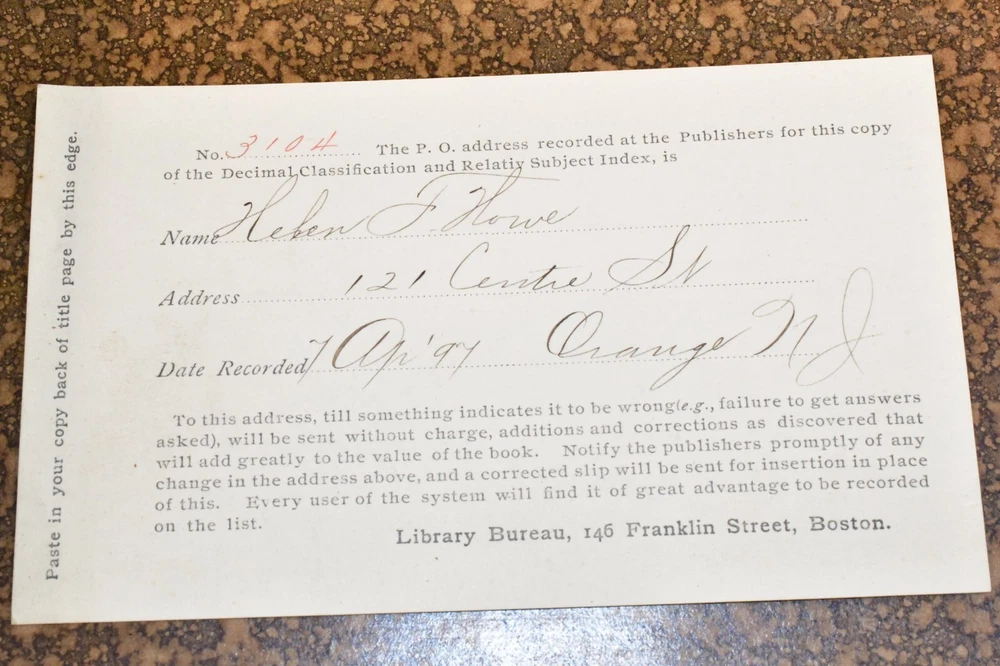 Paste in your copy back of title page by this edge.
No. 3104 The P. O. address recorded at the Publishers for this copy
of the Decimal Classification and Relativ Subject Index, is
Name Helen F. Howe
Address 121 Centre St
Date Recorded 7 Ap '97 Orange N J
To this address, till something indicates it to be wrong (e.g., failure to get answers
asked), will be sent without charge, additions and corrections as discovered that
will add greatly to the value of the book. Notify the publishers promptly of any
change in the address above, and a corrected slip will be sent for insertion in place
of this. Every user of the system will find it of great advantage to be recorded
on the list.
Library Bureau, 146 Franklin Street, Boston.